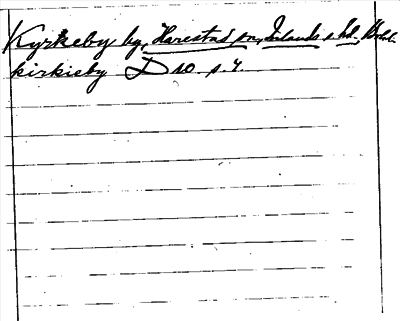 Kyrkeby by, Harestad sn, Inlands s. hd,
kirkieby D no. s. 7.